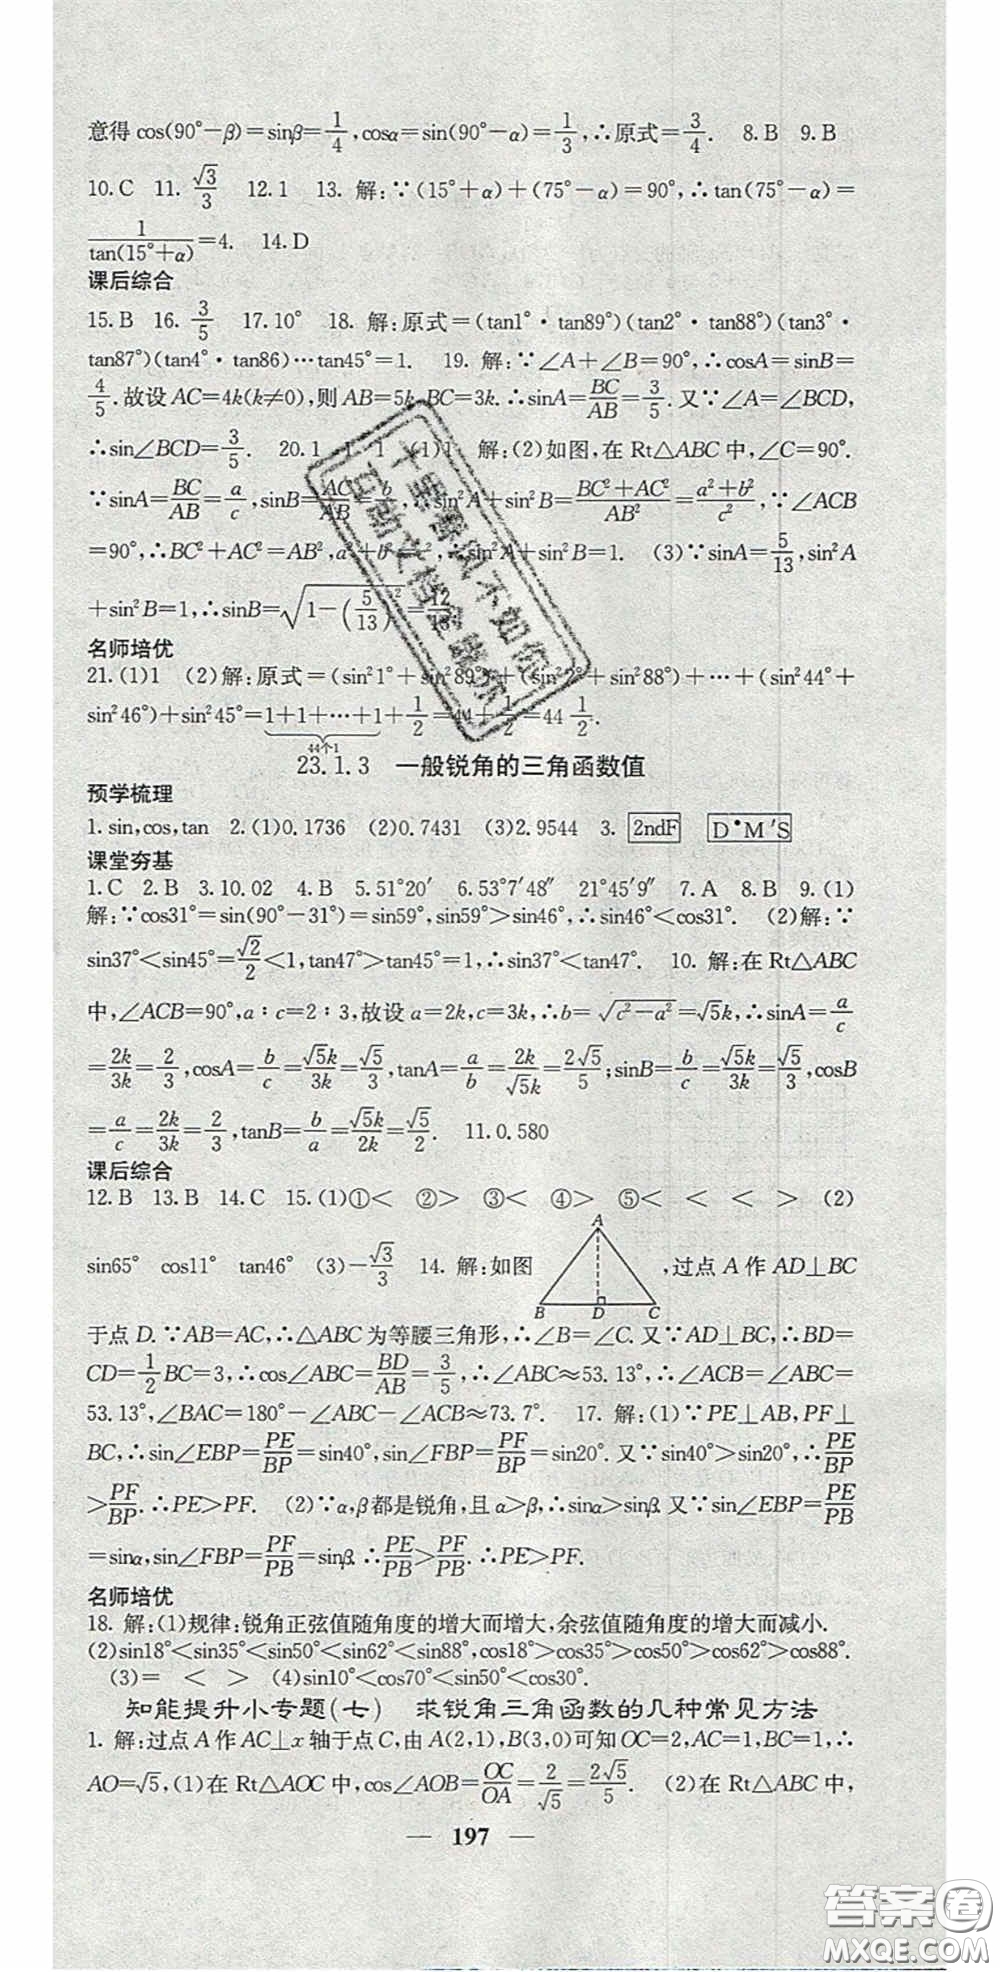 意得 cos(90°－β)＝sinβ＝1/4，cosα＝sin(90°－α)＝1/3，∴原式＝3/4. 8.B 9.B
10.C 11. √3/3 12.1 13. 解：∵(15°＋α)＋(75°－α)＝90°，∴tan(75°－α)＝
1/tan(15°＋α)＝4. 14.D
课后综合
15.B 16. 3/5 17.10° 18. 解：原式＝(tan1°·tan89°)(tan2°·tan88°)(tan3°·
tan87°)(tan4°·tan86)…tan45°＝1. 19. 解：∵∠A＋∠B＝90°，∴cosA＝sinB＝
4/5.故设 AC＝4k(k≠0)，则 AB＝5k，BC＝3k.∴sinA＝BC/AB＝3/5.又∵∠A＝∠BCD，
∴sin∠BCD＝3/5. 20.1 1 1 (1)1 解：(2)如图，在 Rt△ABC 中，∠C＝90°.
∵sinA＝BC/AB＝a/c，sinB＝AC/AB＝b/c，∴sin²A＋sin²B＝(BC²＋AC²)/AB²＝(a²＋b²)/c²，∵∠ACB
＝90°，∴BC²＋AC²＝AB²，a²＋b²＝c²，∴sin²A＋sin²B＝1. (3)∵sinA＝5/13，sin²A
＋sin²B＝1，∴sinB＝√(1－(5/13)²)＝12/13.
名师培优
21.(1)1 (2)解：原式＝(sin²1°＋sin²89°)＋(sin²2°＋sin²88°)＋…＋(sin²44°＋
sin²46°)＋sin²45°＝1＋1＋…＋1＋1/2＝44＋1/2＝44 1/2.
44个1
23.1.3 一般锐角的三角函数值
预学梳理
1.sin，cos，tan 2.(1)0.1736 (2)0.7431 (3)2.9544 3. 2ndF D°M′S
课堂夯基
1.C 2.B 3.10.02 4.B 5.51°20′ 6.53°7′48″ 21°45′9″ 7.A 8.B 9.(1)
解：∵cos31°＝sin(90°－31°)＝sin59°，sin59°＞sin46°，∴sin46°＜cos31°. (2)解：∵
sin37°＜sin45°＝√2/2＜1，tan47°＞tan45°＝1，∴sin37°＜tan47°. 10. 解：在 Rt△ABC
中，∠ACB＝90°，a：c＝2：3，故设 a＝2k，c＝3k，∴b＝√(c²－a²)＝√5k，∴sinA＝a/c
＝2k/3k＝2/3，cosA＝b/c＝√5k/3k＝√5/3，tanA＝a/b＝2k/√5k＝2√5/5；sinB＝b/c＝√5k/3k＝√5/3，cosB
＝a/c＝2k/3k＝2/3，tanB＝b/a＝√5k/2k＝√5/2. 11.0.580
课后综合
12.B 13.B 14.C 15.(1)①＜ ②＞ ③＜ ④＞ ⑤＜ ＜ ＜ ＞ (2)
sin65° cos11° tan46° (3)－√3/3 14. 解：如图 A B D C ，过点 A 作 AD⊥BC
于点 D.∵AB＝AC，∴△ABC 为等腰三角形，∴∠B＝∠C.又∵AD⊥BC，∴BD＝
CD＝1/2BC＝3，∴cos∠ABC＝BD/AB＝3/5，∴∠ABC≈53.13°.∴∠ACB＝∠ABC＝
53.13°，∠BAC＝180°－∠ABC－∠ACB≈73.7°. 17. 解：(1)∵PE⊥AB，PF⊥
BC，∴sin∠EBP＝PE/BP＝sin40°，sin∠FBP＝PF/BP＝sin20°.又∵sin40°＞sin20°，∴PE/BP
＞PF/BP.∴PE＞PF. (2)∵α，β都是锐角，且 α＞β，∴sinα＞sinβ.又∵sin∠EBP＝PE/PB
＝sinα，sin∠FBP＝PF/PB＝sinβ.∴PE/PB＞PF/PB.∴PE＞PF.
名师培优
18. 解：(1)规律：锐角正弦值随角度的增大而增大，余弦值随角度的增大而减小.
(2)sin18°＜sin35°＜sin50°＜sin62°＜sin88°，cos18°＞cos35°＞cos50°＞cos62°＞cos88°.
(3)＝ ＜ ＞ (4)sin10°＜cos70°＜sin50°＜cos30°.
知能提升小专题(七) 求锐角三角函数的几种常见方法
1. 解：过点 A 作 AC⊥x 轴于点 C，由 A(2,1)，B(3,0)可知 OC＝2，AC＝1，BC＝1，∴
AO＝√5，(1)在 Rt△AOC 中，cos∠AOB＝OC/OA＝2/√5＝2√5/5. (2)在 Rt△ABC 中，
— 197 —
十里春风不如你
答案卷
MXQE.COM